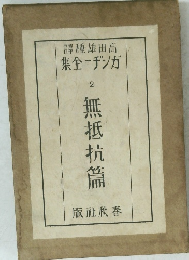 譯雄田高
集全一ヂンガ
2
無抵抗篇
版社秋春